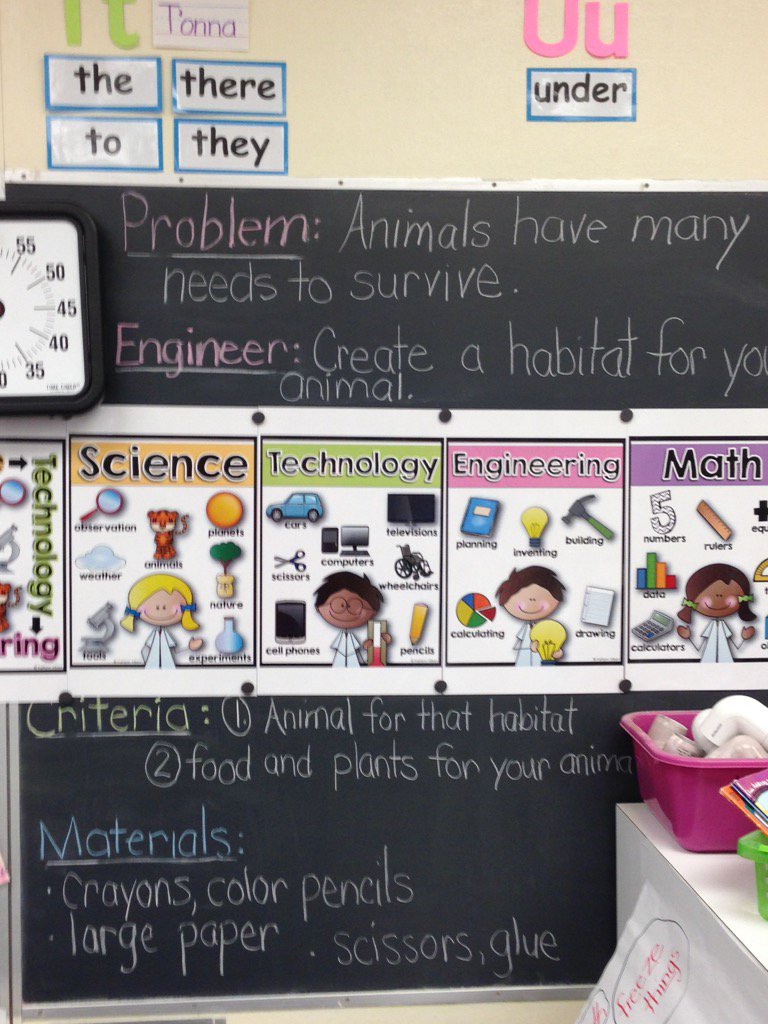 Tt
Tonna
Uu
the there
to they
under
Problem: Animals have many
needs to survive.
Engineer: Create a habitat for
animal.
55
50
45
40
35
Technology
Science
observation
planets
animals
weather
nature
tools
experiments
Technology
cars
televisions
computers
scissors
wheelchairs
cell phones
pencils
Engineering
planning
inventing
building
calculating
drawing
Math
5
numbers
rulers
data
calculators
Criteria: ① Animal for that habitat
② food and plants for your anima
Materials:
· crayons, color pencils
· large paper · scissors, glue
freeze
things